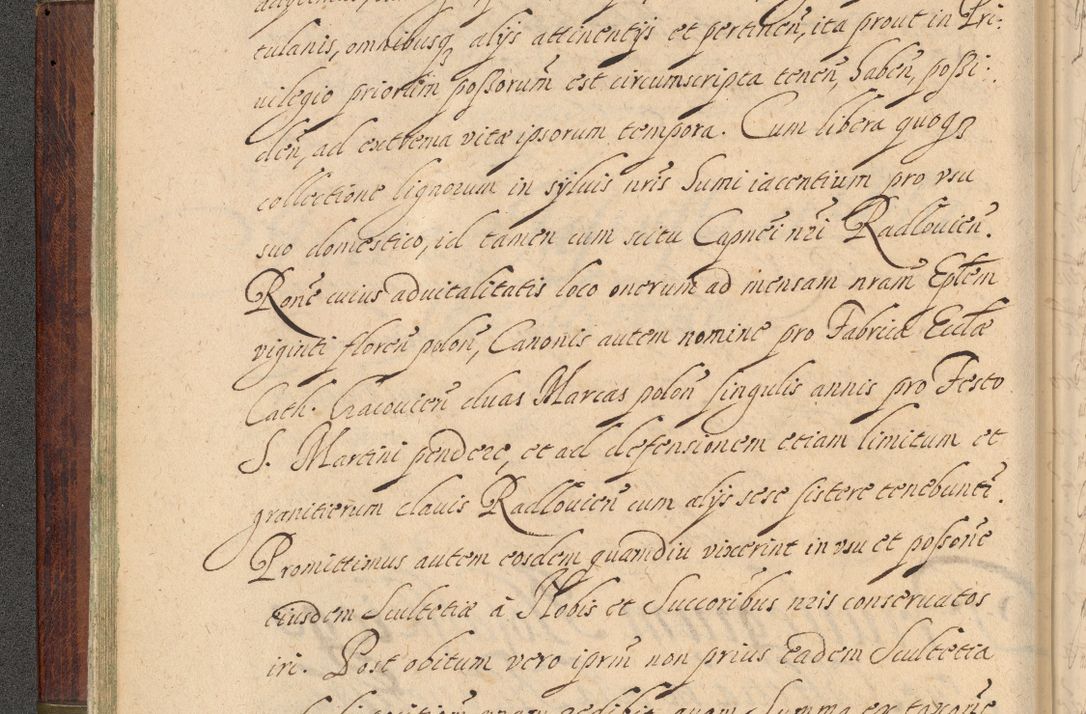 tulanis, omnibusq₃ alijs attinentijs et pertinen̄, ita prout in Pri-
uilegio priorum poss̄orum est circumscripta tenen̄, haben̄, possi-
den̄, ad extrema vitæ ipsorum tempora. Cum libera quoq₃
collectione lignorum in syluis nr̄is humi iacentium pro vsu
suo domestico, id tamen cum scitu Capnei nr̄i Radłouien̄.
Rōne cuius aduitalitatis loco onerum ad mensam nram̄ Ep̄lem
viginti floren̄ polon̄, Canonis autem nomine pro Fabrica Eccl̄æ
Cath. Cracouien̄ duas Marcas polon̄ singulis annis pro Festo
S. Martini pendere, et ad defensionem etiam limitum et
granitierum clauis Radłouien̄ cum alijs sese sistere tenebunt̄.
Promittimus autem eosdem quamdiu vixerint in vsu et poss̄one
eiusdem Scultetiæ à Nobis et Succoribus nr̄is conseruatos
iri. Post obitum vero ipr̄m non prius eadem Scultetia